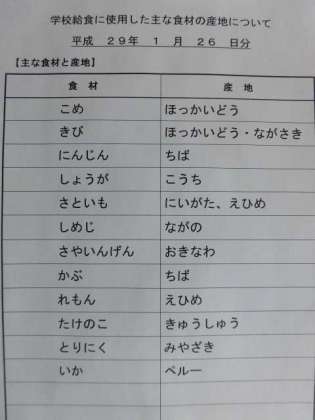 学校給食に使用した主な食材の産地について
平成 29年 1 月 26 日分
【主な食材と産地】
食 材 産 地
こめ ほっかいどう
きび ほっかいどう・ながさき
にんじん ちば
しょうが こうち
さといも にいがた、えひめ
しめじ ながの
さやいんげん おきなわ
かぶ ちば
れもん えひめ
たけのこ きゅうしゅう
とりにく みやざき
いか ペルー